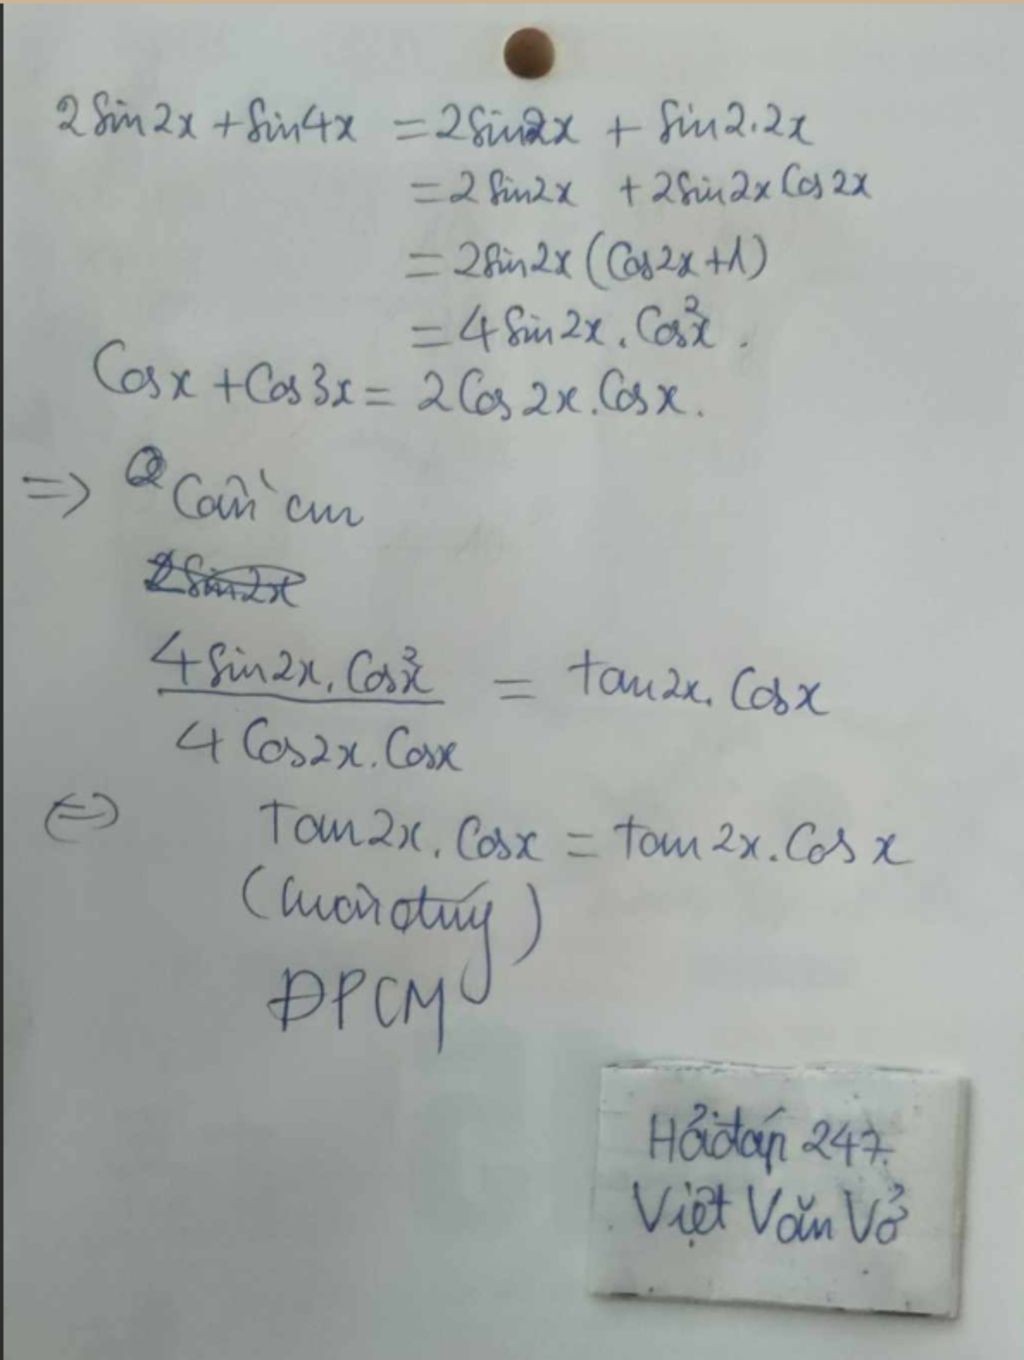 2Sin2x + Sin4x = 2Sin2x + Sin2.2x
= 2Sin2x + 2Sin2x Cos2x
= 2Sin2x (Cos2x+1)
= 4Sin2x . Cos²x .
Cosx + Cos3x = 2Cos2x.Cosx.
=> Cần cm
2Sin2x
4Sin2x. Cos²x / 4Cos2x.Cosx = tan2x. Cosx
<=> Tan2x. Cosx = tan2x.Cosx
(luôn đúng)
ĐPCM
Hỏi đáp 247.
Việt Văn Vở